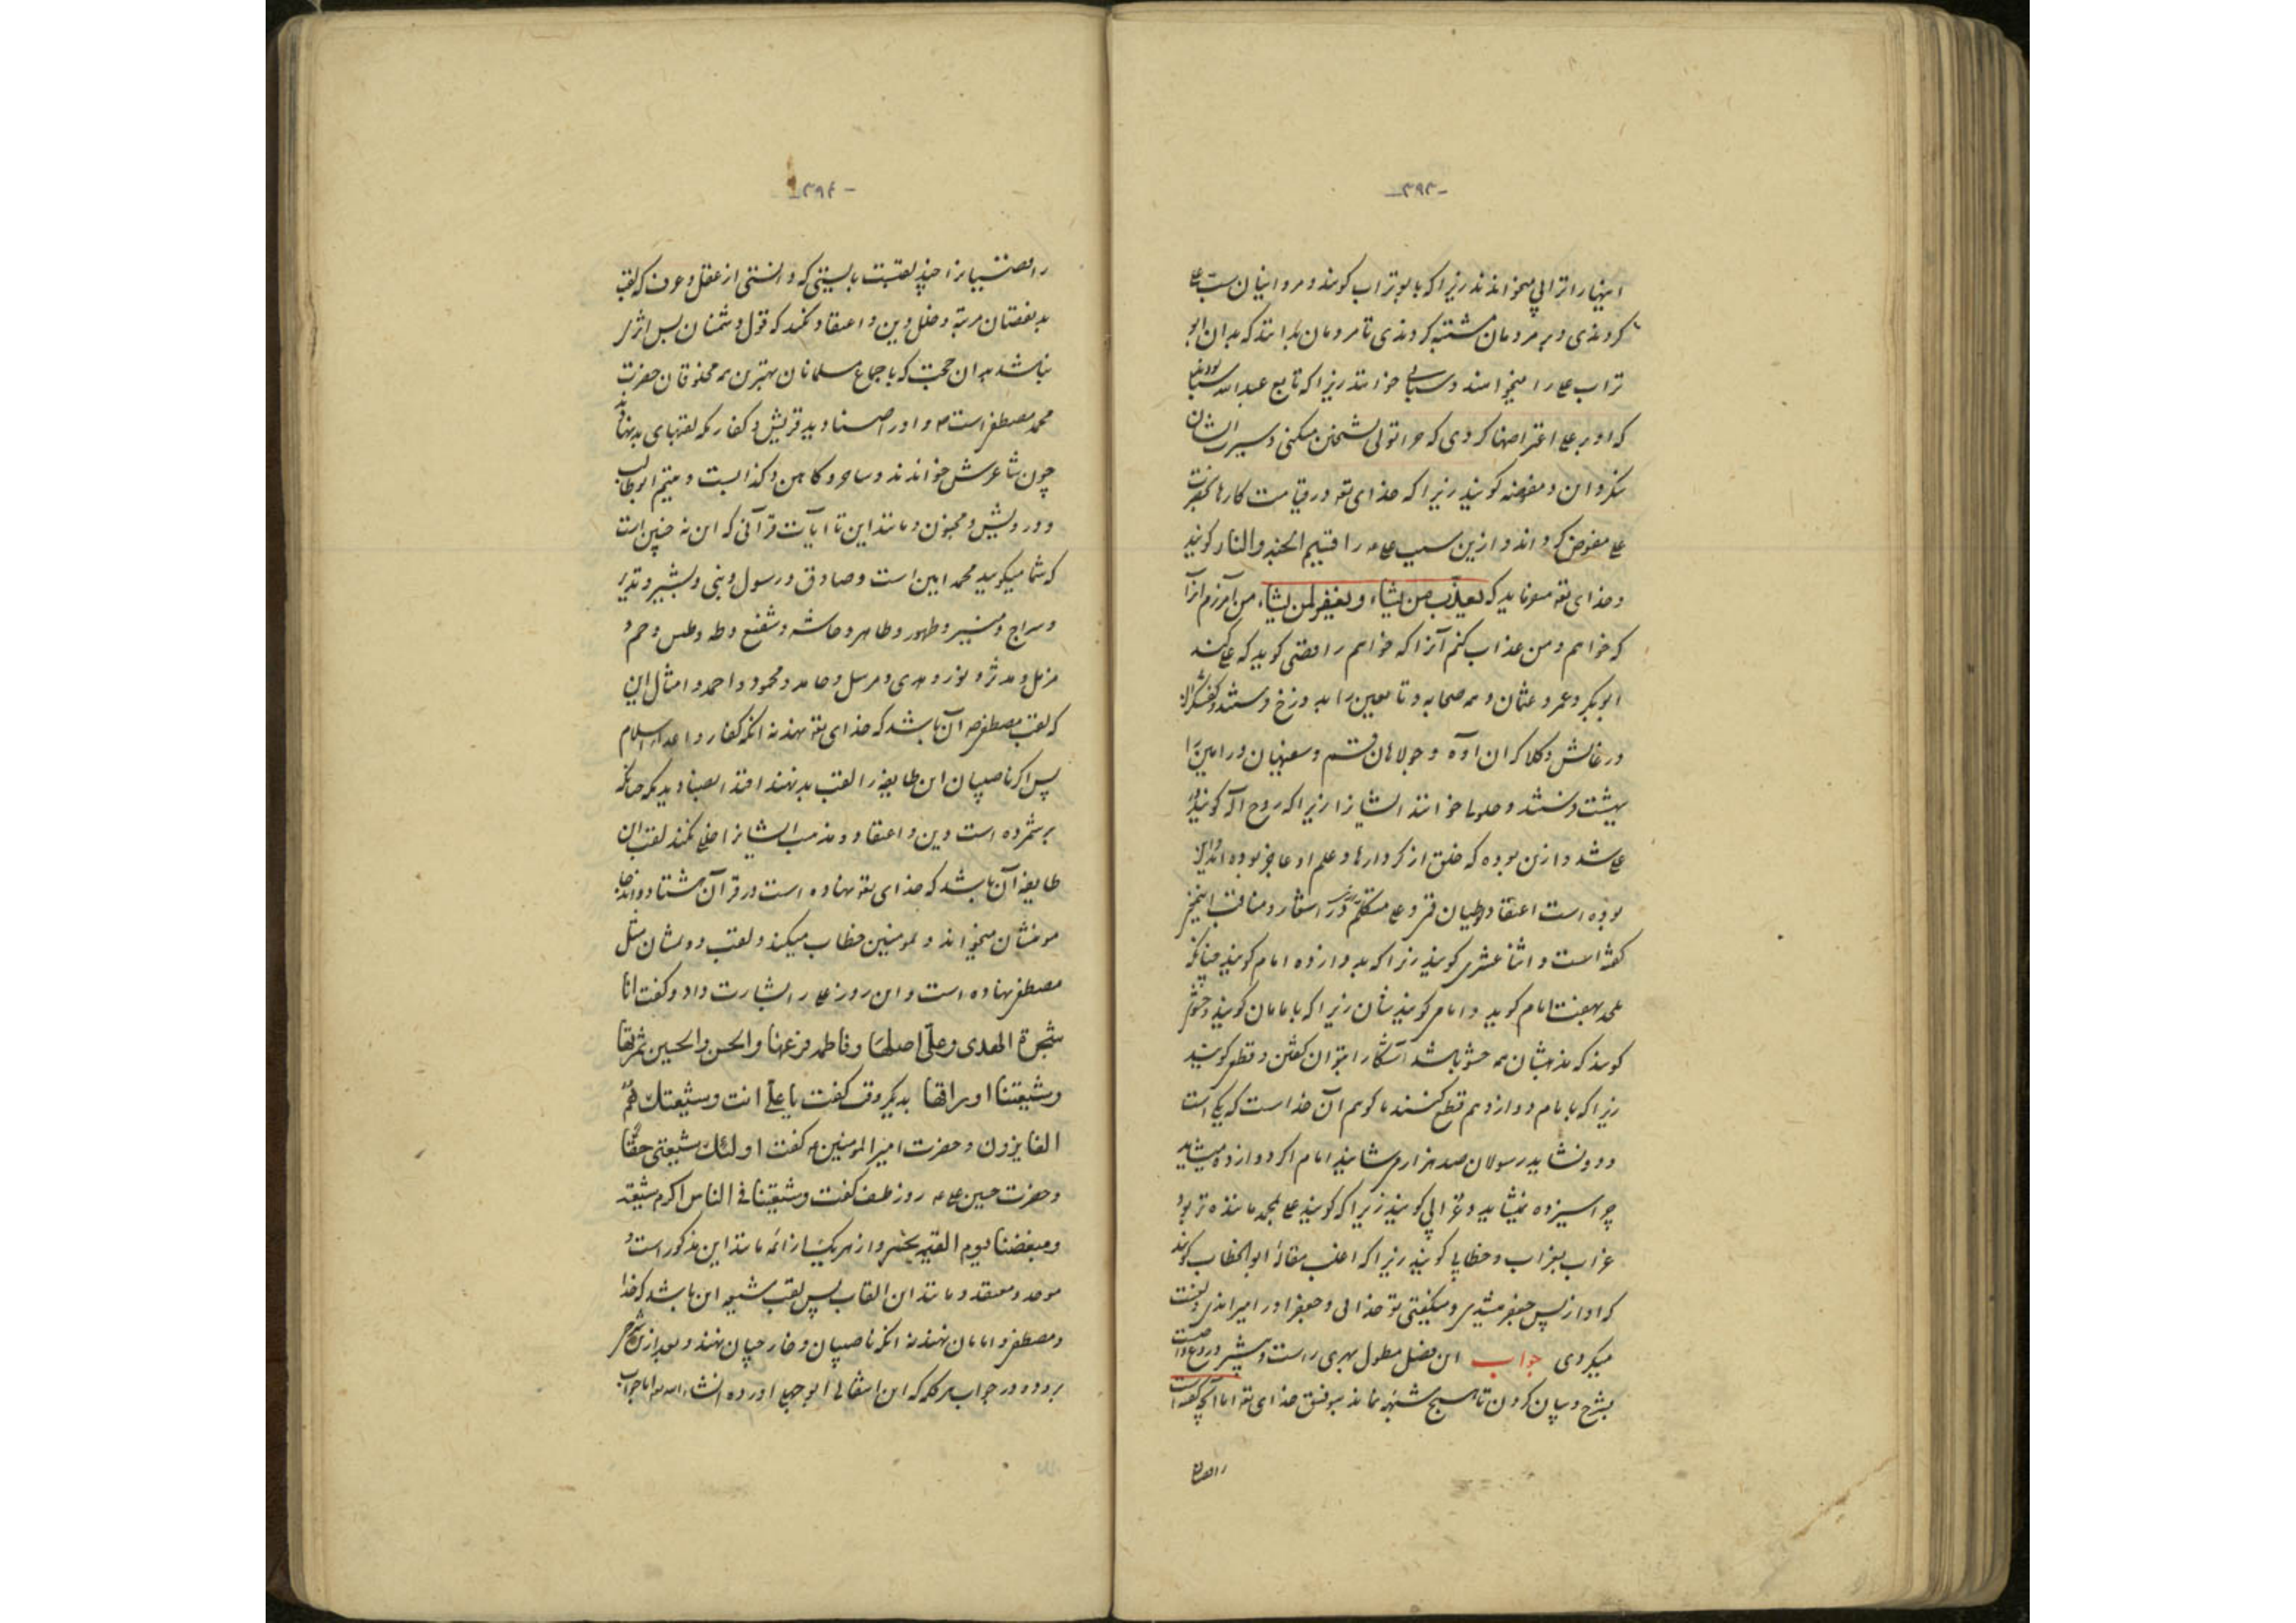 -۳۹۳-
اینها را ترابی میخوانند زیرا که با بوتراب کویند و مروانیان سب علی
کردندی و بر مردمان مشتبه کردندی تا مردمان بدانند که بدان ابو
تراب علی را میخواهند و سبابی خوانند زیرا که تابع عبدالله سبا
که او بر علی اعتراضها کردی که چرا تولی بشیخین میکنی و سیرت ایشان
و مفوضه کویند زیرا که خدای تع در قیامت کارها بحضرت
علی مفوض کرداند و ازین سبب علی ع را قسیم الجنه والنار کویند
و خدای تع میفرماید که یعذب من یشاء و یغفر لمن یشاء من آمرزم آنرا
که خواهم و من عذاب کنم آنرا که خواهم رافضی کوید که علی کند
ابوبکر و عمر و عثمان و همه صحابه و تابعین را بدوزخ فرستد و کفشکران
درغایش و کلاه کران آوه و جولاهان قم و سفیهان ورامین را
بهشت فرستد و حلولیا خوانند ایشانرا زیرا که روح اله کویند در
علی شد و ازین بوده که خلق از کردارها و علم او عاجز بوده اند و این
بوده است اعتقاد در اشعار و مناقب این خبر
کفته است و اثنا عشری کویند زیرا که بدوازده امام کویند چنانکه
ملحد بهفت امام کوید و امامی کویندشان زیرا که با مامان کویند و حشوی
کویند که مذهبشان همه حشو باشد آشکارا نتوان کفتن و قطعی کویند
زیرا که با مام دوازدهم قطع کنند ما کوئیم آن خداست که یکی است
و دو نشاید رسولان صد هزارم شایند امام اکر دوازده میشاید
چرا سیزده نمیشاید و غرابی کویند زیرا که کویند علی بمحمد ماننده تر بود
غراب بغراب و خطابی کویند زیرا که اغلب مقاله ابوالخطاب کویند
که او از پس جعفر میشدی و میکفتی تو خدائی و جعفر او را میراندی و لعنت
میکردی جواب این فصل مطول بهری راست و بیشتر دروغ واجبست
بشرح و بیان کردن تا هیچ شبهه نماند بتوفیق خدای تع اما آنچه کفته است
رافضیان
-۳۹۴-
رافضیانرا چند لقبست بایستی که دانستی از عقل و عرف که لقب
بد نقصان مرتبه و خلل دین و اعتقاد نکند که قول دشمنان بس اثر
نباشد بدان حجت که باجماع مسلمانان بهترین همه مخلوقان حضرت
محمد مصطفی است ص و او را صنادید قریش و کفار مکه لقبهای بد نهاده
چون شاعرش خواندند و ساحر و کاهن و کذابست و یتیم ابوطالب
و درویش و مجنون و مانند این تا آیات قرآنی که این نه چنین است
که شما میکویید محمد امین است و صادق و رسول و نبی و بشیر و نذیر
و سراج و منیر و طهور و طاهر و حاشر و شفیع و طه و طس و حم و
مزمل و مدثر و نور و هدی و مرسل و حامد و محمود و احمد و امثال این
که لقب مصطفی ص آن باشد که خدای تع نهد نه آنکه کفار و اعدای اسلام
پس اکر ناصبیان این طایفه را لقب بد نهند اقتدا بصنادید مکه چنانکه
برشمرده است دین و اعتقاد و مذهب ایشانرا خللی نکند لقب این
طایفه آن باشد که خدای تع نهاده است در قرآن هشتاد و اند جا
مومنشان میخواند و بمومنین خطاب میکند و لقب دومشان مثل
مصطفی نهاده است و این روز علی را بشارت داد و کفت انا
شجرة الهدی و علی اصلها و فاطمه فرعها والحسن والحسین ثمرتها
و شیعتنا اوراقها بدیکر وقت کفت یا علی انت و شیعتک هم
الفایزون و حضرت امیرالمومنین ع کفت اولئک شیعتی حقا
و حضرت حسین ع روز طف کفت و شیعتنا فی الناس اکرم شیعة
و مبغضنا یوم القیمة یخسر و از هر یک از ائمه مانند این مذکور است و
موحد و معتقد و مانند این القاب پس لقب شیعه این باشد که خدا
و مصطفی و امامان نهند نه آنکه ناصبیان و خارجیان نهند و بعد ازین شرح
برود در جواب هر کلمه که این انتقالی ابوجهلی آورده انشاءالله اما جواب